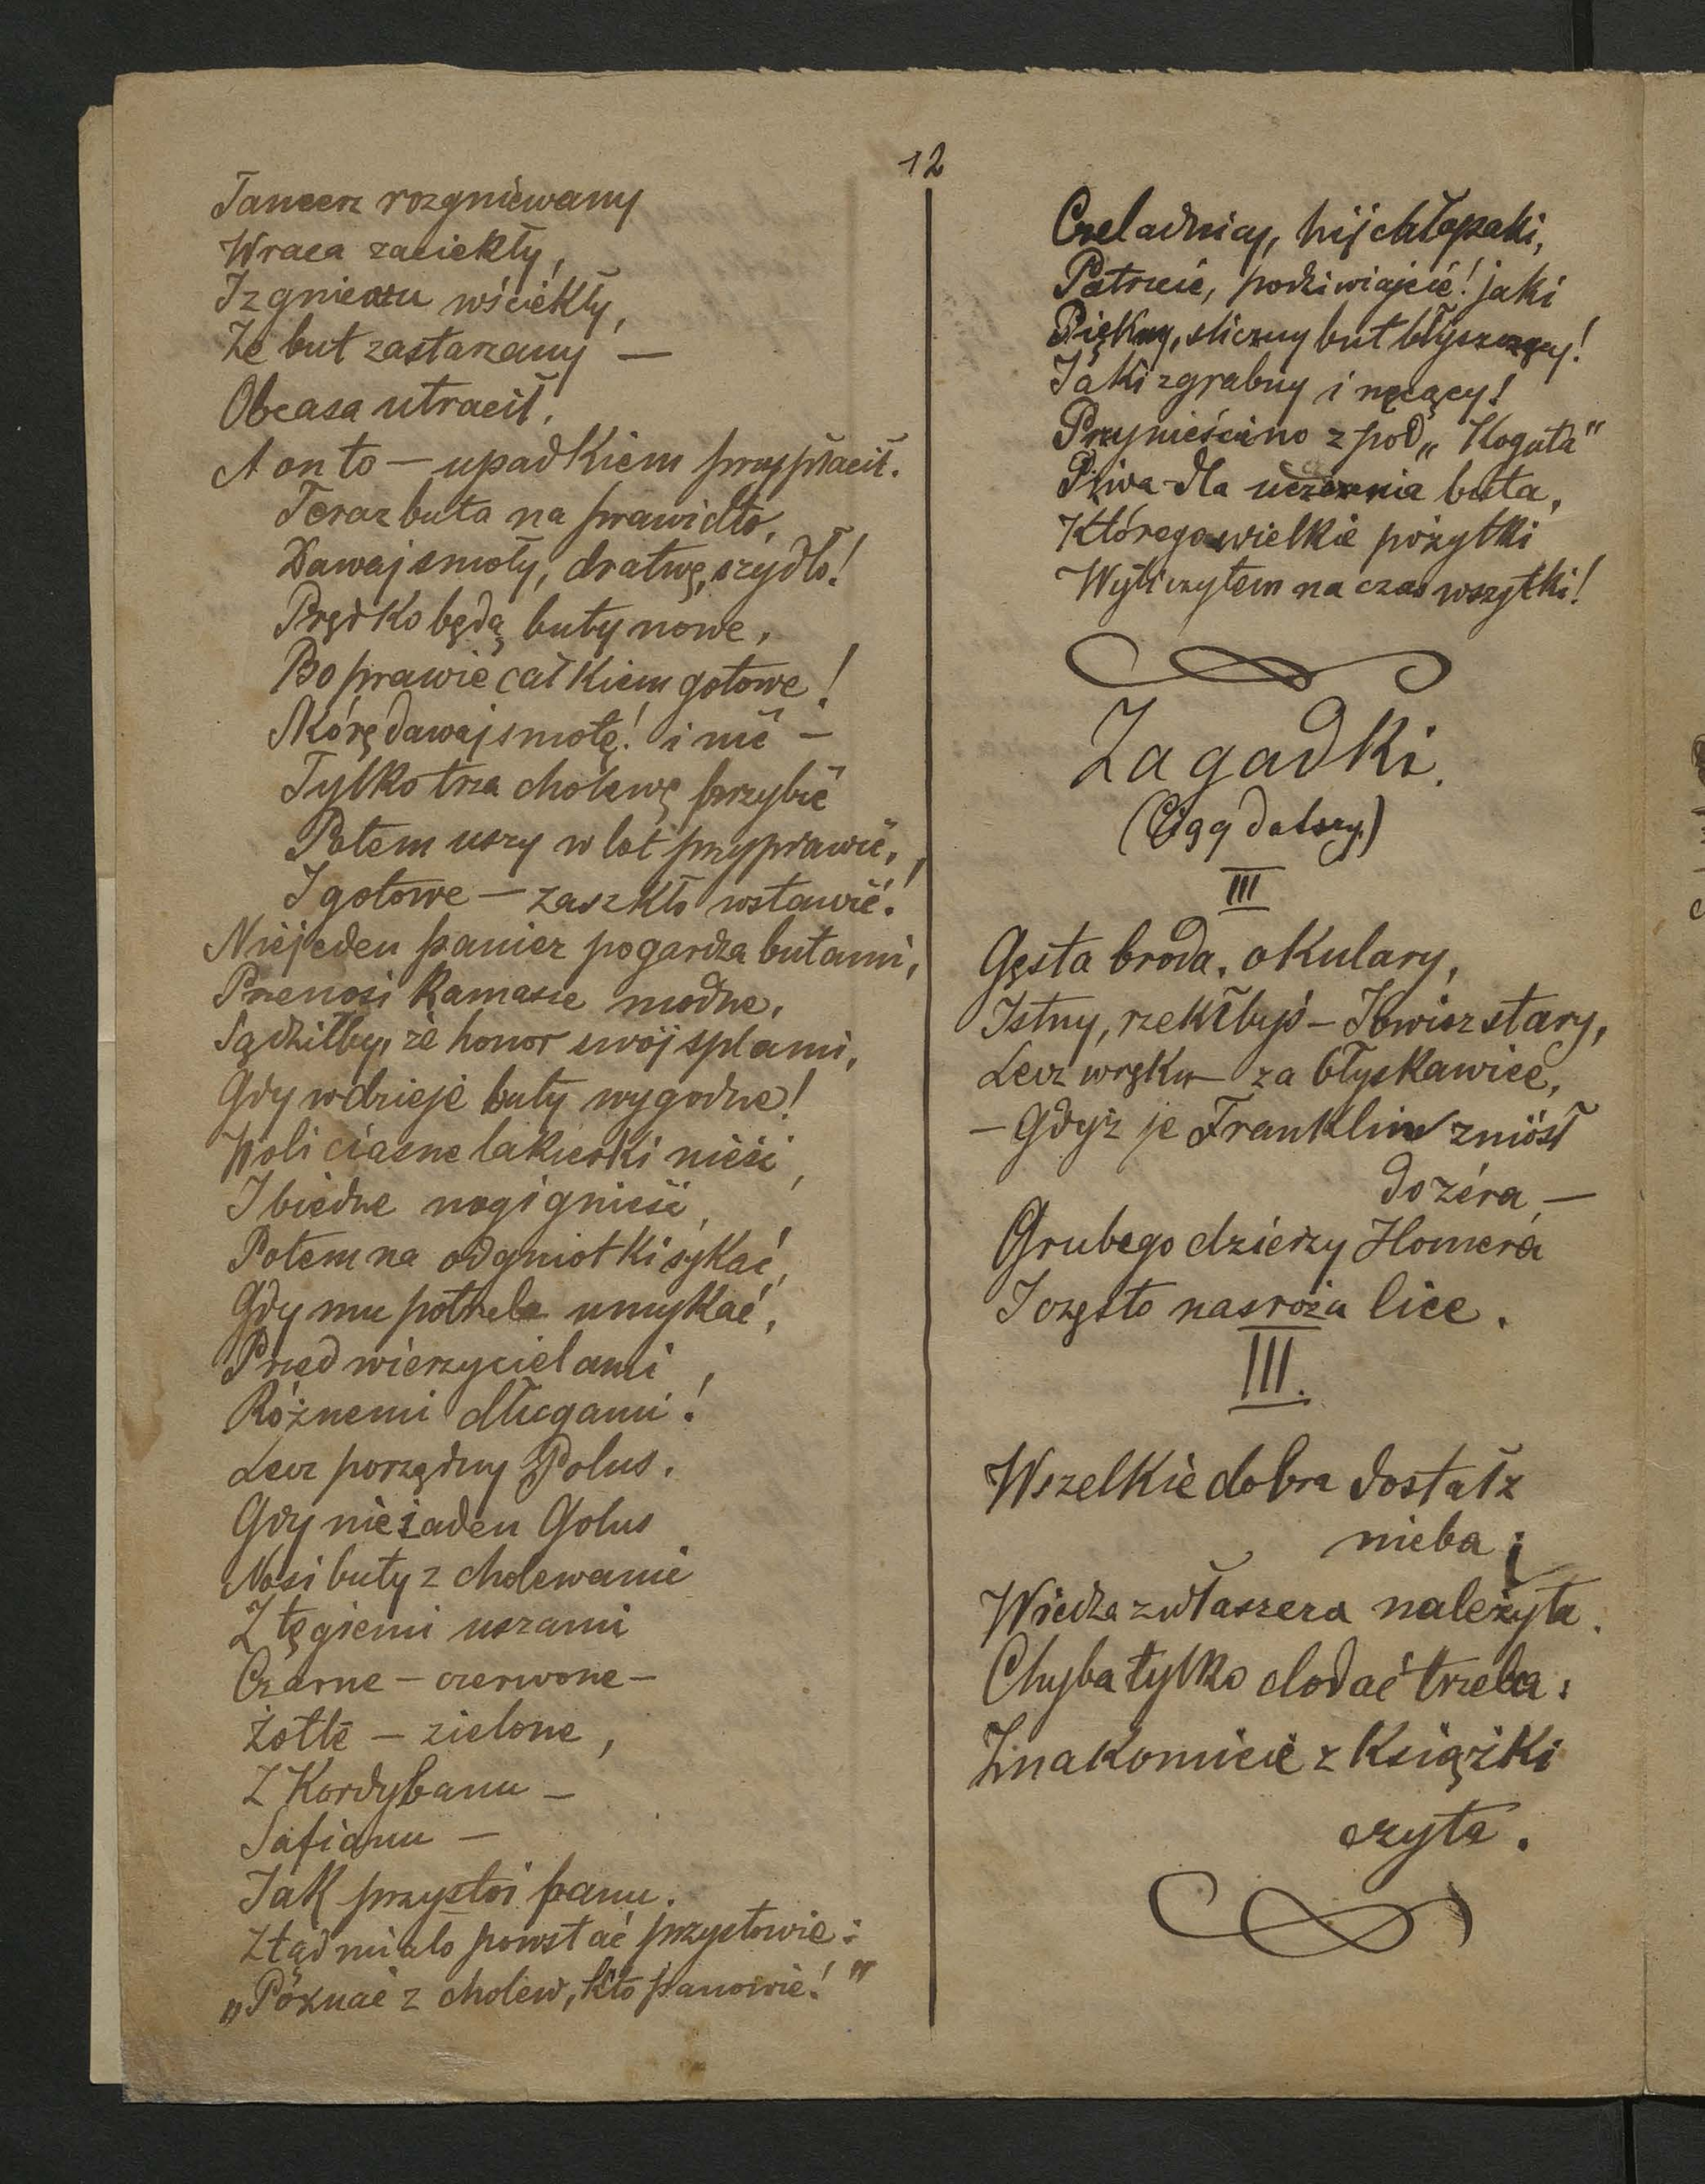 12
Tancerz rozgniewany
Wraca zaciekły,
I z gniewu wściekły,
Że but zastarzany —
Obcasa utracił,
A on to — upadkiem przypłacił.
Teraz buta na prawidło,
Dawaj smoły, dratwę, szydło!
Prędko będą buty nowe,
Bo prawie całkiem gotowe!
Skórę dawaj smołę! i nić —
Tylko trza cholewę przybić
Potem uszy w lot przyprawić,
I gotowe — za szkło wstawić!
Niejeden panicz pogardza butami,
Przenosi kamasze modne,
Sądziłby, że honor swój splami,
Gdy wdzieje buty wygodne!
Woli ciasne lakierki nieść,
I biedne nogi gnieść,
Potem na odgniotki sykać,
Gdy mu potrzeba umykać,
Przed wierzycielami,
Różnemi długami!
Lecz porządny Polus,
Gdy nie żaden Golus
Nosi buty z cholewami
Z tęgiemi uszami
Czarne — czerwone —
Żółte — zielone,
Z Kordybanu —
Safianu —
Jak przystoi panu.
Ztąd miało powstać przysłowie:
„Poznać z cholew, kto panowie!"
Czeladnicy, hij chłopaki,
Patrzcie, podziwiajcie! jaki
Piękny, śliczny but błyszczący!
Jaki zgrabny i nęcący!
Przynieścino z pod „Koguta"
Piwa dla uczczenia buta,
Którego wielkie pożytki
Wyliczyłem na czas wszytki!
Zagadki.
(Ciąg dalszy)
III
Gęsta broda, okulary,
Istny, rzekłbyś — Jowisz stary,
Lecz w ręku — za błyskawice,
— Gdyż je Franklin zniósł
do zéra —
Grubego dzierży Homera
I często nasroża lice.
III.
Wszelkie dobra dostał z
nieba;
Wiedza zwłaszcza należyta.
Chyba tylko dodać trzeba:
Znakomicie z książki
czyta.